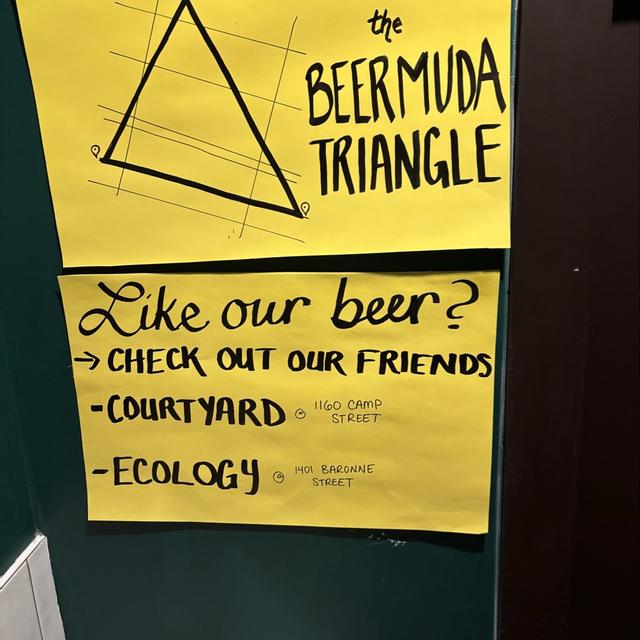 the
BEERMUDA
TRIANGLE
Like our beer?
→ CHECK OUT OUR FRIENDS
- COURTYARD @ 1160 CAMP
STREET
- ECOLOGY @ 1401 BARONNE
STREET